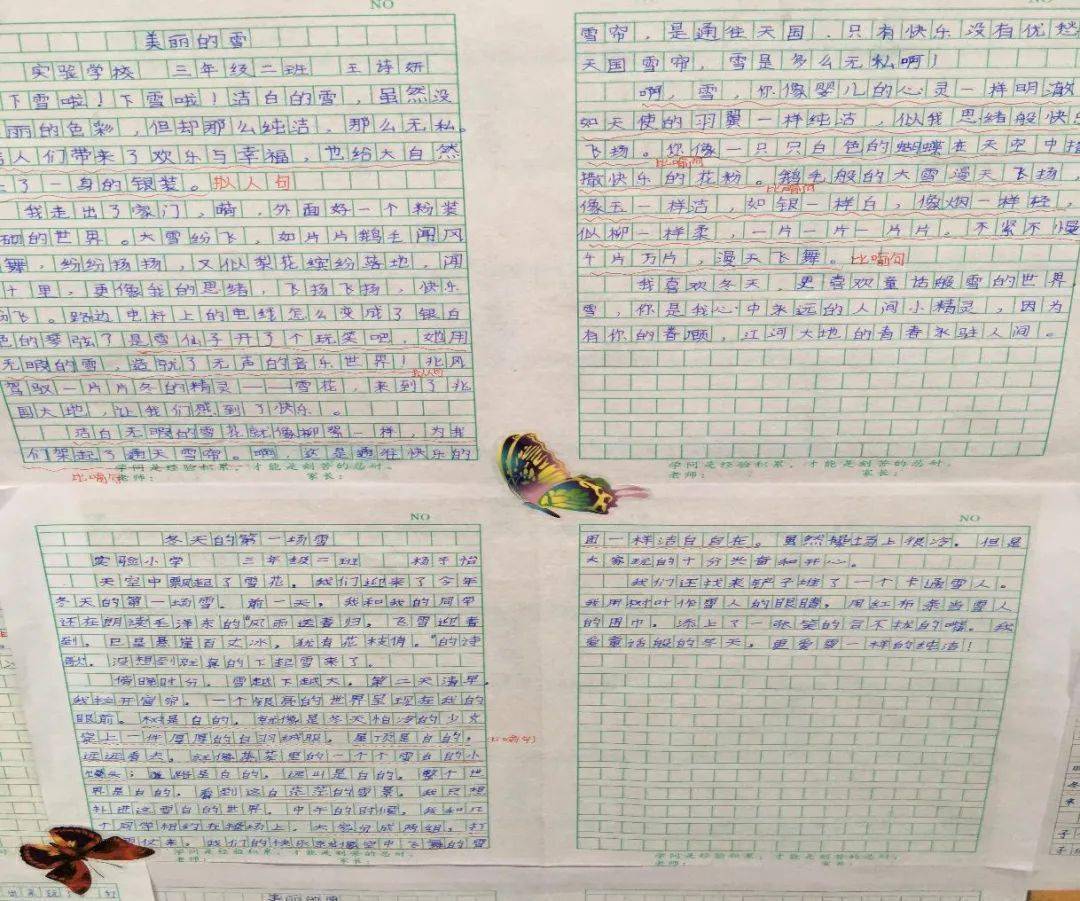 NO
美丽的雪
实验学校 三年级二班 王诗妍
下雪啦！下雪啦！洁白的雪，虽然没
丽的色彩，但却那么纯洁，那么无私。
人们带来了欢乐与幸福，也给大自然
了一身的银装。拟人句
我走出了家门，嗬，外面好一个粉装
砌的世界。大雪纷飞，如片片鹅毛闻风
舞，纷纷扬扬，又似梨花缤纷落地，闻
十里，更像我的思绪，飞扬飞扬，快乐
飞。路边电杆上的电线怎么变成了银白
色的琴弦了是雪仙子开了个玩笑吧，她用
无暇的雪，造就了无声的音乐世界！北风
拟人句
驾驭一片片冬的精灵——雪花，来到了北
国大地，让我们感到了快乐。
洁白无暇的雪花就像柳絮一样，为我
们架起了通天雪帘。啊，这是通往快乐的
比喻句
学问是经验积累，才能是刻苦的忍耐。
老师： 家长：
NO
雪帘，是通往天国．只有快乐没有优愁
天国雪帘，雪是多么无私啊！
啊，雪，你像婴儿的心灵一样明澈
如天使的羽翼一样纯洁，似我思绪般快乐
飞扬。你像一只只白色的蝴蝶在天空中播
比喻句
撒快乐的花粉。鹅毛般的大雪漫天飞扬，
比喻句
像玉一样洁，如银一样白，像烟一样轻，
似柳一样柔，一片一片一片片。不紧不慢
千片万片，漫天飞舞。比喻句
我喜欢冬天，更喜欢童话般雪的世界
雪，你是我心中永远的人间小精灵，因为
有你的眷顾，江河大地的青春永驻人间。
学问是经验积累，才能是刻苦的忍耐。
老师： 家长：
NO
冬天的第一场雪
实验小学 三年级二班 杨子怡
天空中飘起了雪花。我们迎来了今年
冬天的第一场雪。前一天，我和我的同学
还在朗读毛泽东的“风雨送春归。飞雪迎春
到。已是悬崖百丈冰。犹有花枝俏。”的诗
歌。没想到还真的下起雪来了。
傍晚时分。雪越下越大。第二天清早。
我拉开窗帘。一个银亮的世界呈现在我的
眼前。树是白的。就像是冬天怕冷的少女
穿上一件厚厚的白羽绒服。屋顶是白的。
比喻句
远远看去。好像蒸笼里的一个个雪白的小
馒头；道路是白的。远山是白的。整个世
界是白的。看到这白茫茫的雪景。我只想
扑进这雪白的世界。中午的时候。我和几
个同学相约在操场上。大家分成两组，打
仗来。我们的快乐就像空中飞舞的雪
学问是经验积累，才能是刻苦的忍耐。
老师： 家长：
NO
团一样洁白自在。虽然操场上很冷。但是
大家玩的十分兴奋和开心。
我们还找来铲子堆了一个卡通雪人。
我用树叶作雪人的眼睛。用红布条当雪人
的围巾。添上了一张笑的合不拢的嘴。我
爱童话般的冬天。更爱雪一样的纯洁！
学问是经验积累，才能是刻苦的忍耐。
老师： 家长：